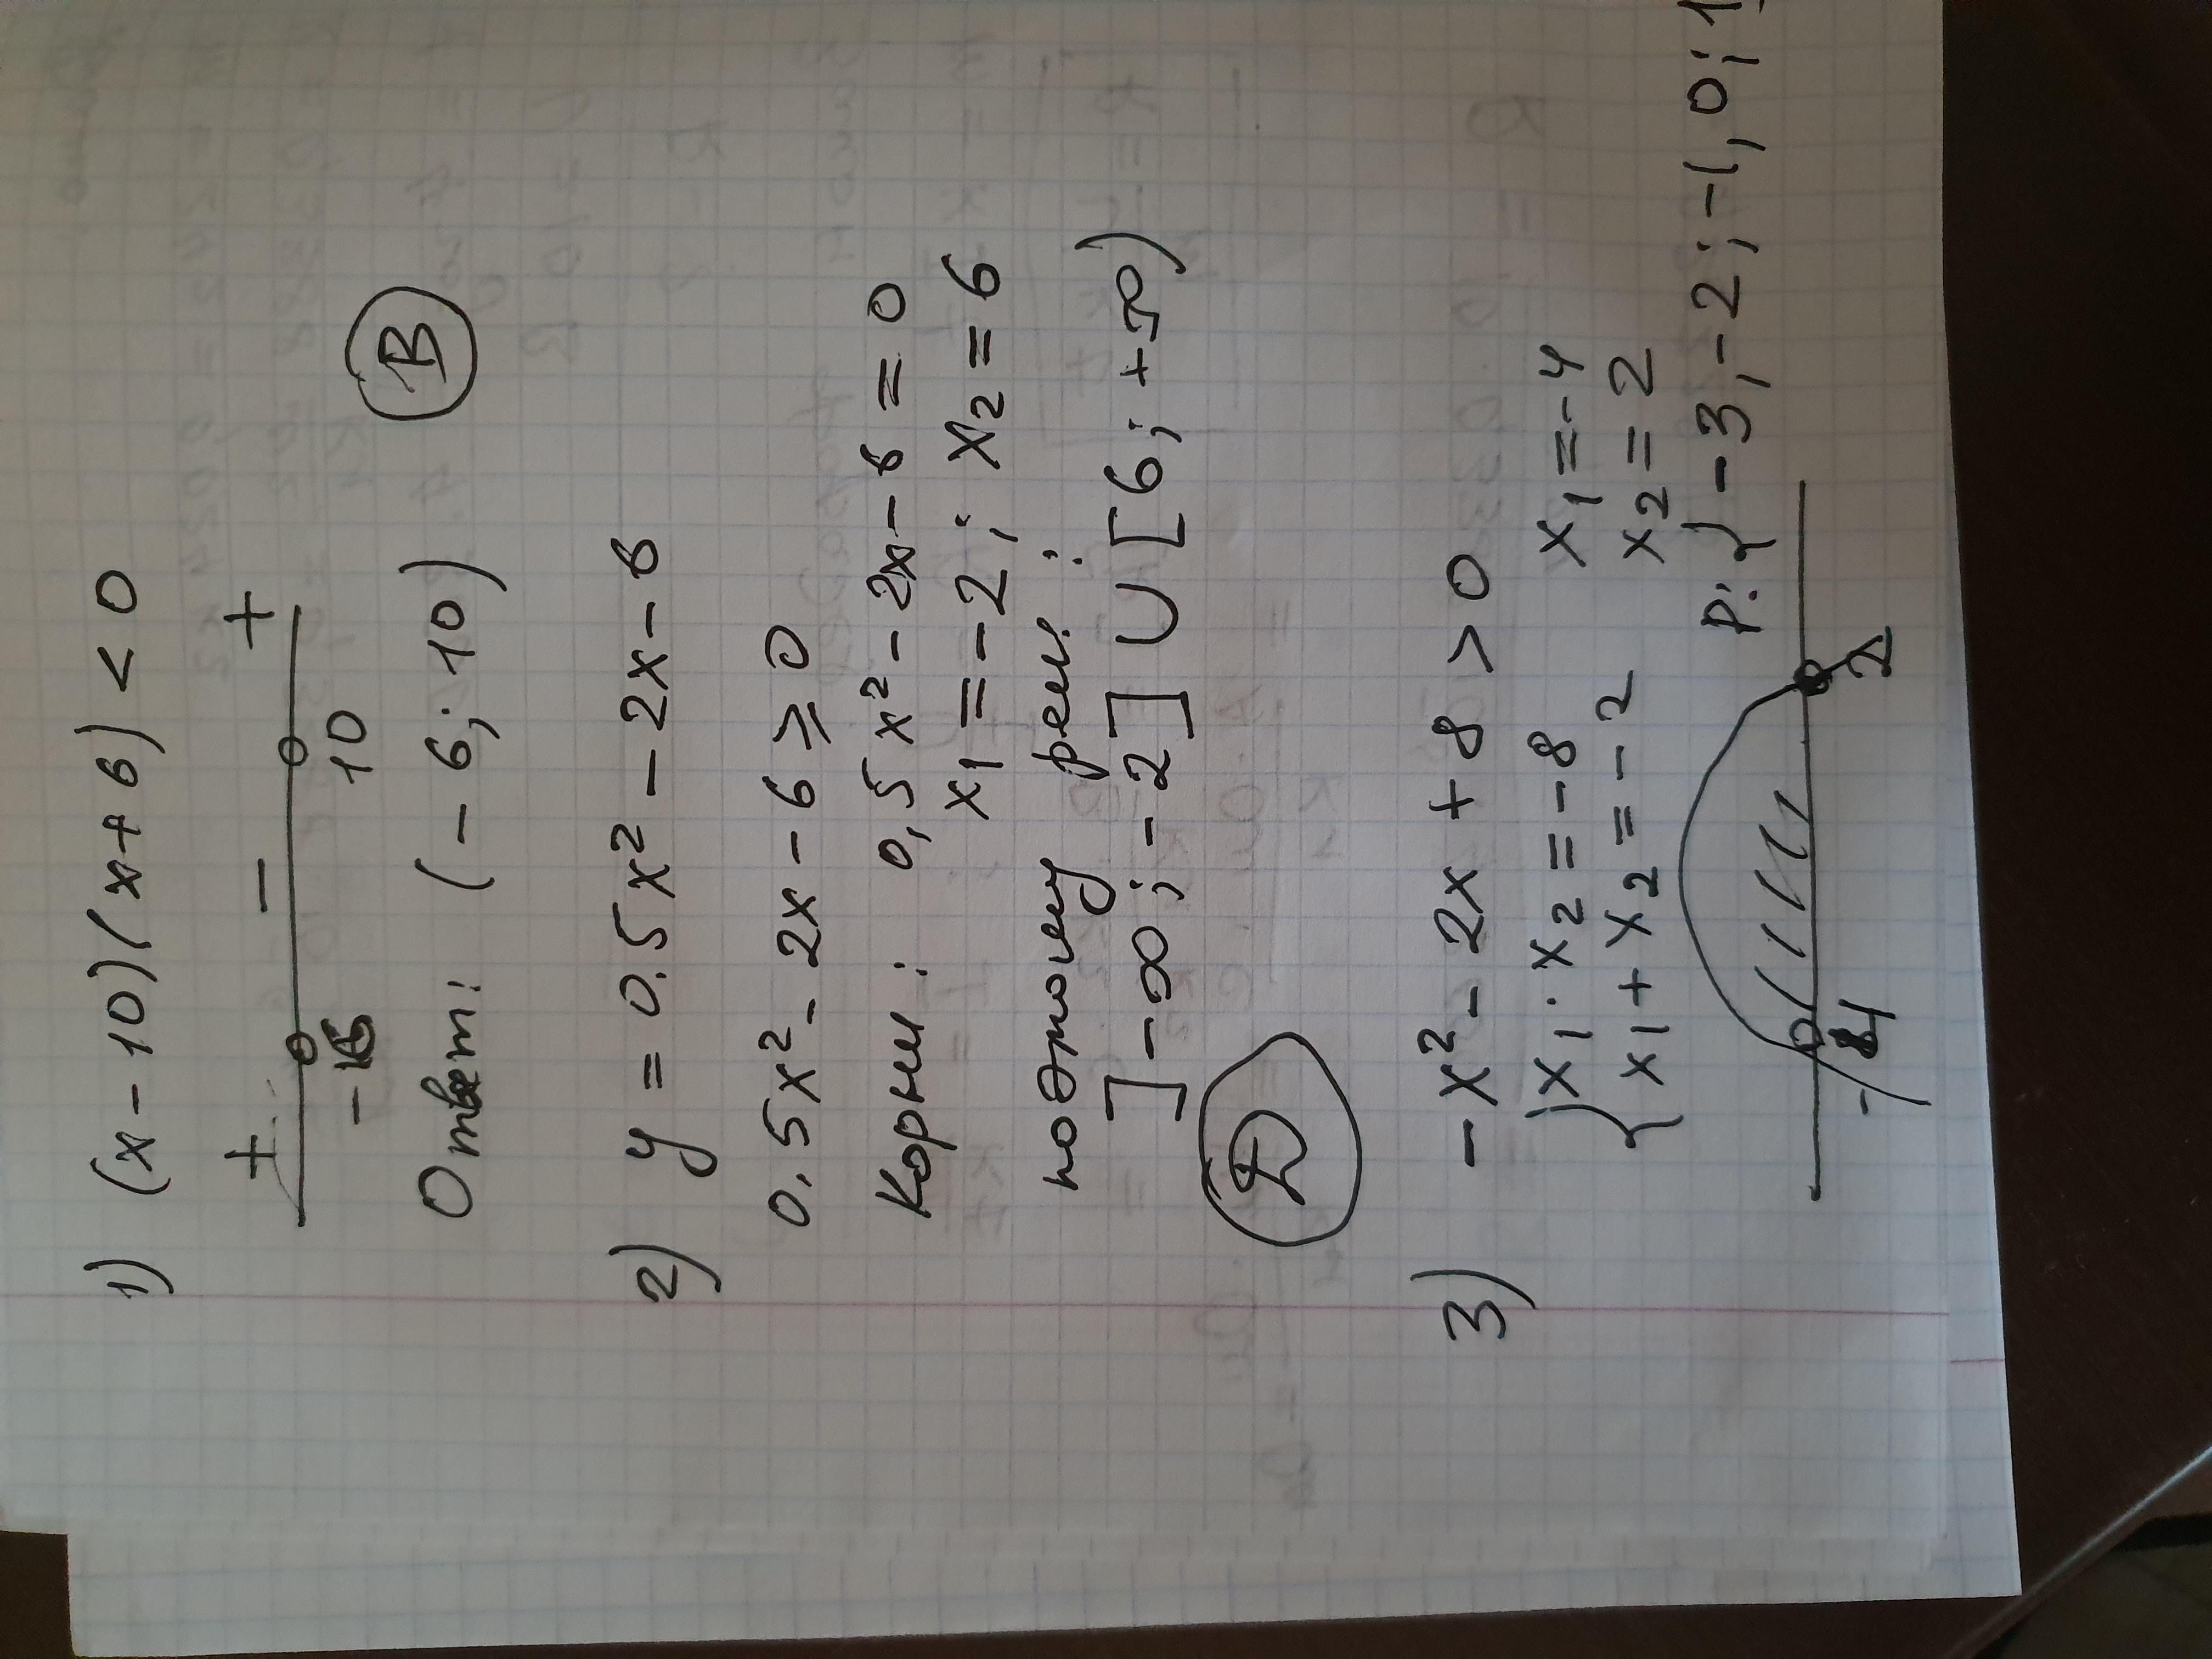 1) (x-10)(x+6) < 0
+ − +
-6 10
Ответ: (-6; 10) В
2) y = 0.5x² - 2x - 6
0,5x² - 2x - 6 ≥ 0
Корни: 0,5x² - 2x - 6 = 0
x₁ = -2; x₂ = 6
поэтому реш:
]-∞; -2] ∪ [6; +∞)
D
3) -x² - 2x + 8 > 0
{ x₁ · x₂ = -8 x₁ = -4
{ x₁ + x₂ = -2 x₂ = 2
р: } -3, -2; -1, 0; 1
-4 2